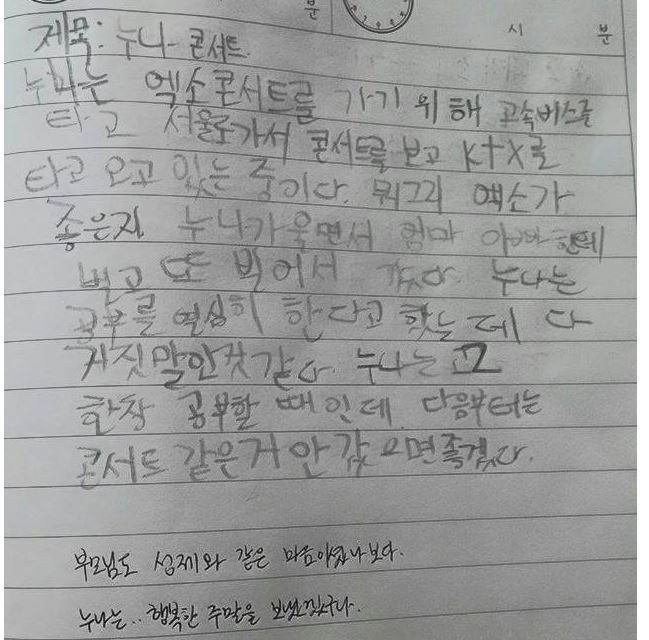 분
시 분
제목: 누나 콘서트.
누나는 엑소콘서트를 가기 위해 고속버스를
타고 서울로가서 콘서트를 보고 ktx를
타고 오고 있는 중이다. 뭐그리 엑소가
좋은지 누나가울면서 엄마 아빠한테
빌고 또 빌어서 갔다. 누나는
공부를 열심히 한다고 했는데 다
거짓말인것같다. 누나는 고2
한창 공부할 때인데 다음부터는
콘서트 같은거 안 갔으면좋겠다.
부모님도 성제와 같은 마음이셨나보다.
누나는.. 행복한 주말을 보냈겠구나.